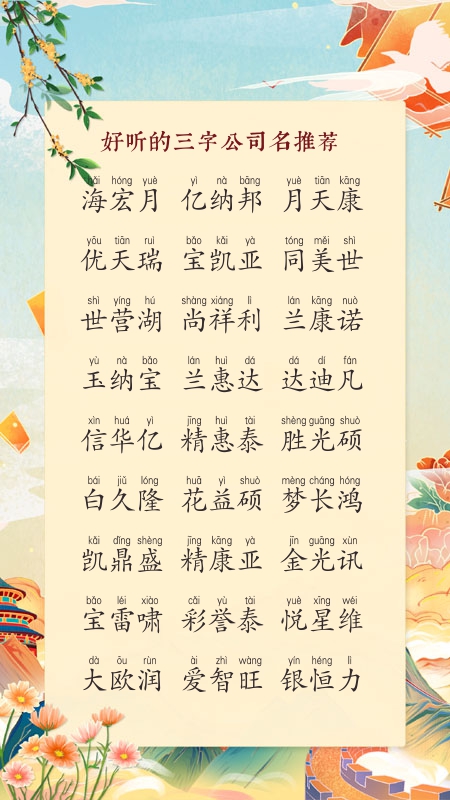 好听的三字公司名推荐
hǎi hóng yuè yì nà bāng yuè tiān kāng
海宏月 亿纳邦 月天康
yōu tiān ruì bǎo kǎi yà tóng měi shì
优天瑞 宝凯亚 同美世
shì yíng hú shàng xiáng lì lán kāng nuò
世营湖 尚祥利 兰康诺
yù nà bǎo lán huì dá dá dí fán
玉纳宝 兰惠达 达迪凡
xìn huá yì jīng huì tài shèng guāng shuò
信华亿 精惠泰 胜光硕
bái jiǔ lóng huā yì shuò mèng cháng hóng
白久隆 花益硕 梦长鸿
kǎi dǐng shèng jīng kāng yà jīn guāng xùn
凯鼎盛 精康亚 金光讯
bǎo léi xiào cǎi yù tài yuè xīng wéi
宝雷啸 彩誉泰 悦星维
dà ōu rùn ài zhì wàng yín héng lì
大欧润 爱智旺 银恒力